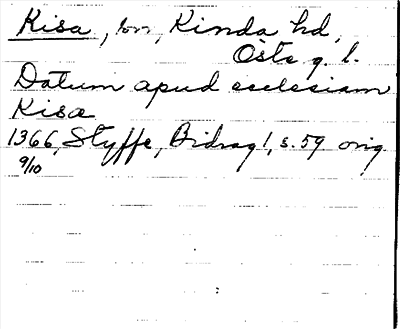 Kisa, sn, Kinda hd,
Östg. l.
Datum apud ecclesiam
Kisæ
1366, Styffe, Bidrag 1, s. 59 orig
9/10